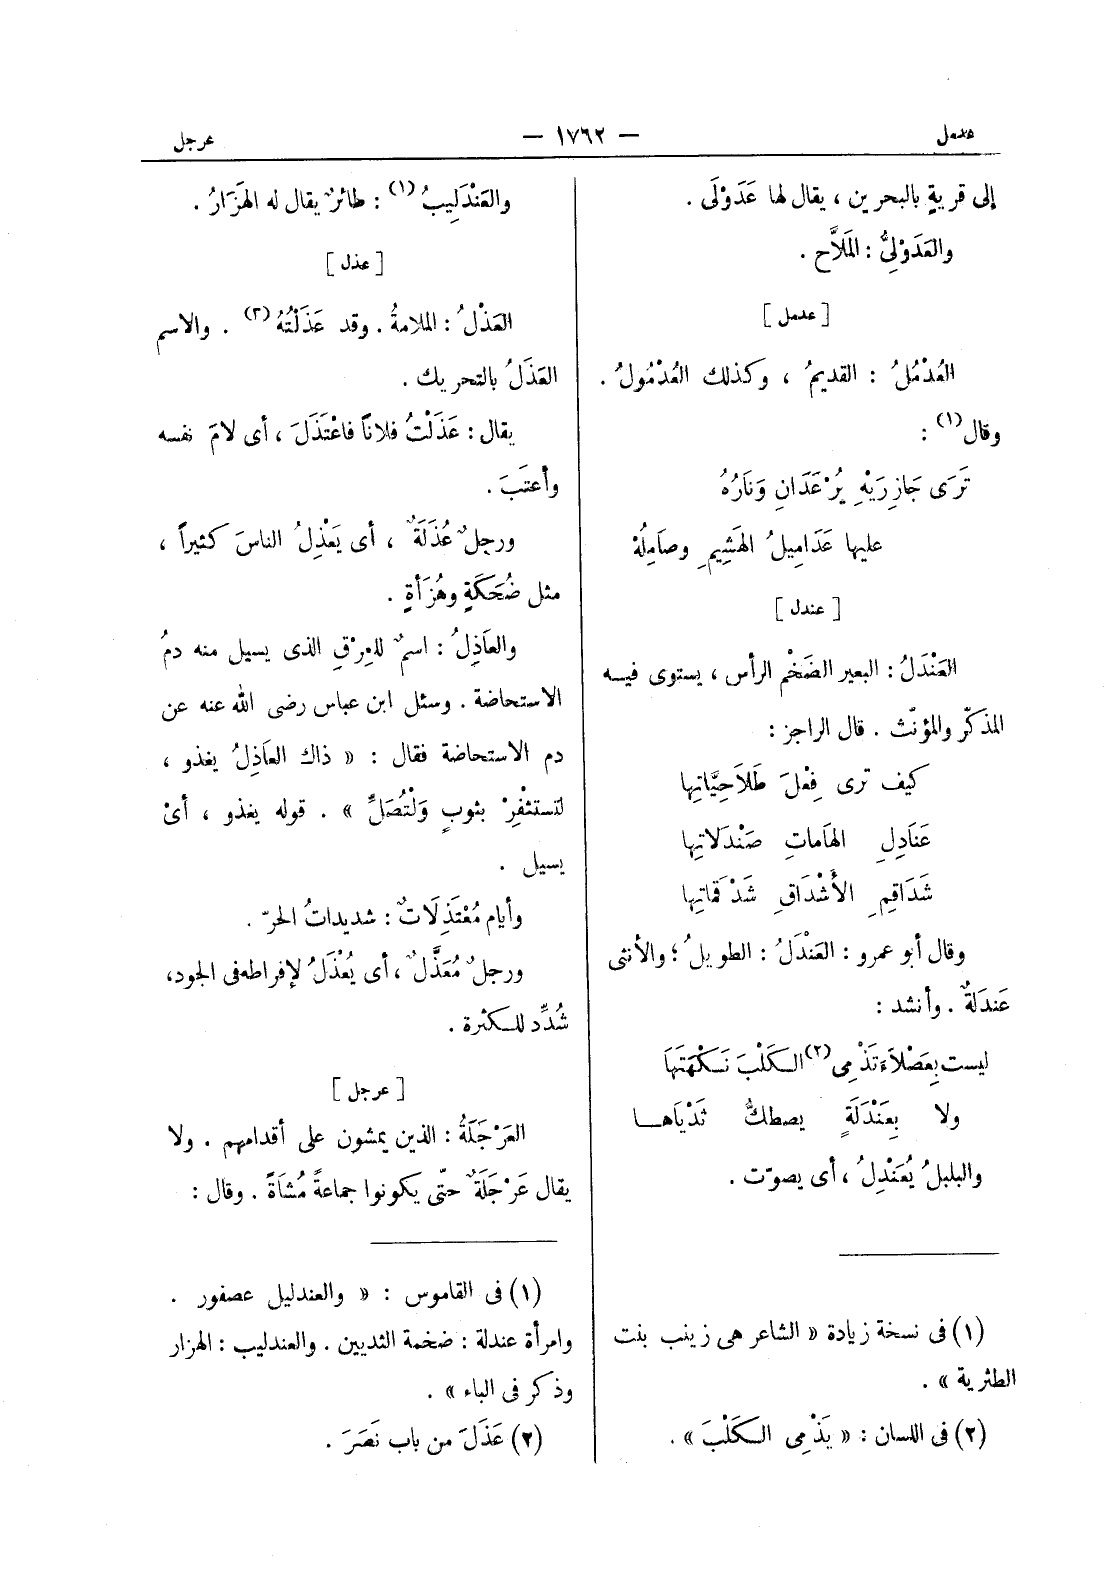 عدمل — ١٧٦٢ — عرجل
إلى قريةٍ بالبحرين ، يقال لها عَدَوْلَى .
والعَدَوْلِىُّ : المَلاَّح .
[ عدمل ]
العُدْمُلُ : القديمُ ، وكذلك العُدْمُولُ .
وقال (١) :
تَرَى جَازِرَيْهِ يُرْعَدَانِ وَنَارُهُ
عليها عَدَامِيلُ الهَشِيمِ وصَامِلُهْ
[ عندل ]
العَنْدَلُ : البعير الضَخْم الرأس ، يستوى فيه
المذكّر والمؤنّث . قال الراجز :
كيف ترى فِعْلَ طَلاَحِيَّاتِها
عَنَادِلِ الهَامَاتِ صَنْدَلاَتِها
شَدَاقِمِ الأَشْدَاقِ شَدْقَمَاتِها
وقال أبو عمرو : العَنْدَلُ : الطويلُ ؛ والأنثى
عَندَلةٌ . وأنشد :
ليست بِعَصْلاَءَ تَذْمِى (٢) الكَلْبَ نَكْهَتَهَا
ولا بِعَنْدَلَةٍ يصطكُّ ثَدْيَاهَا
والبلبلُ يُعَنْدِلُ ، أى يصوّت .
(١) فى نسخة زيادة « الشاعر هى زينب بنت
الطثرية » .
(٢) فى اللسان : « يَذْمِى الكَلْبَ » .
والعَنْدَلِيبُ (١) : طائرٌ يقال له الهَزَارُ .
[ عذل ]
العَذْلُ : الملامةُ . وقد عَذَلْتُهُ (٢) . والاسم
العَذَلُ بالتحريك .
يقال : عَذَلْتُ فلاناً فاعْتَذَلَ ، أى لامَ نفسه
وأعتَبَ .
ورجلٌ عُذَلَةٌ ، أى يَعْذِلُ الناسَ كثيراً ،
مثل ضُحَكَةٍ وهُزَأَةٍ .
والعاَذِلُ : اسمٌ للعِرْقِ الذى يسيل منه دمُ
الاستحاضة . وسئل ابن عباس رضى الله عنه عن
دم الاستحاضة فقال : « ذاك العاَذِلُ يغذو ،
لتستثْفِرْ بثوبٍ وَلْتُصَلِّ » . قوله يغذو ، أىْ
يسيل .
وأيام مُعْتَذِلَاتٌ : شديداتُ الحرّ .
ورجلٌ مُعَذَّلٌ ، أى يُعْذَلُ لإفراطه فى الجود،
شُدِّد للكثرة .
[ عرجل ]
العَرْجَلَةُ : الذين يمشون على أقدامهم . ولا
يقال عَرْجَلَةٌ حتّى يكونوا جماعةً مُشَاةً . وقال :
(١) فى القاموس : « والعندليل عصفور .
وامرأة عندلة : ضخمة الثديين . والعندليب : الهزار
وذكر فى الباء » .
(٢) عَذَلَ من باب نَصَرَ .